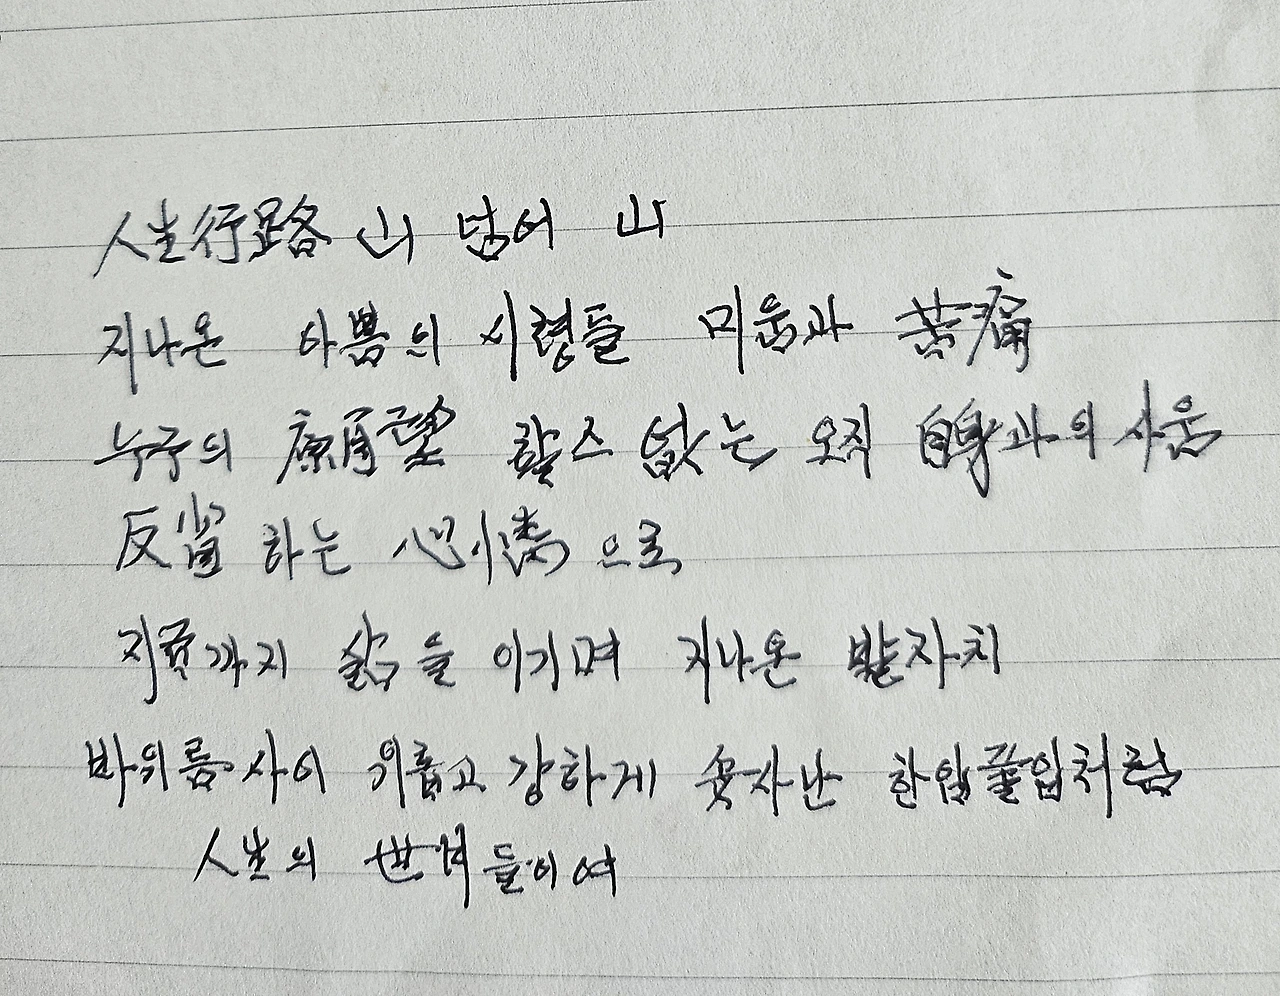 人生行路 山 넘어 山
지나온 아픔의 시련들 미움과 苦痛
누구의 願望 할스 없는 오직 自身과의 사움
反省 하는 心情 으로
지금까지 삶을 이기며 지나온 발자치
바위틈사이 외롭고 강하게 솟사난 한잎풀잎처럼
人生의 世계들이여